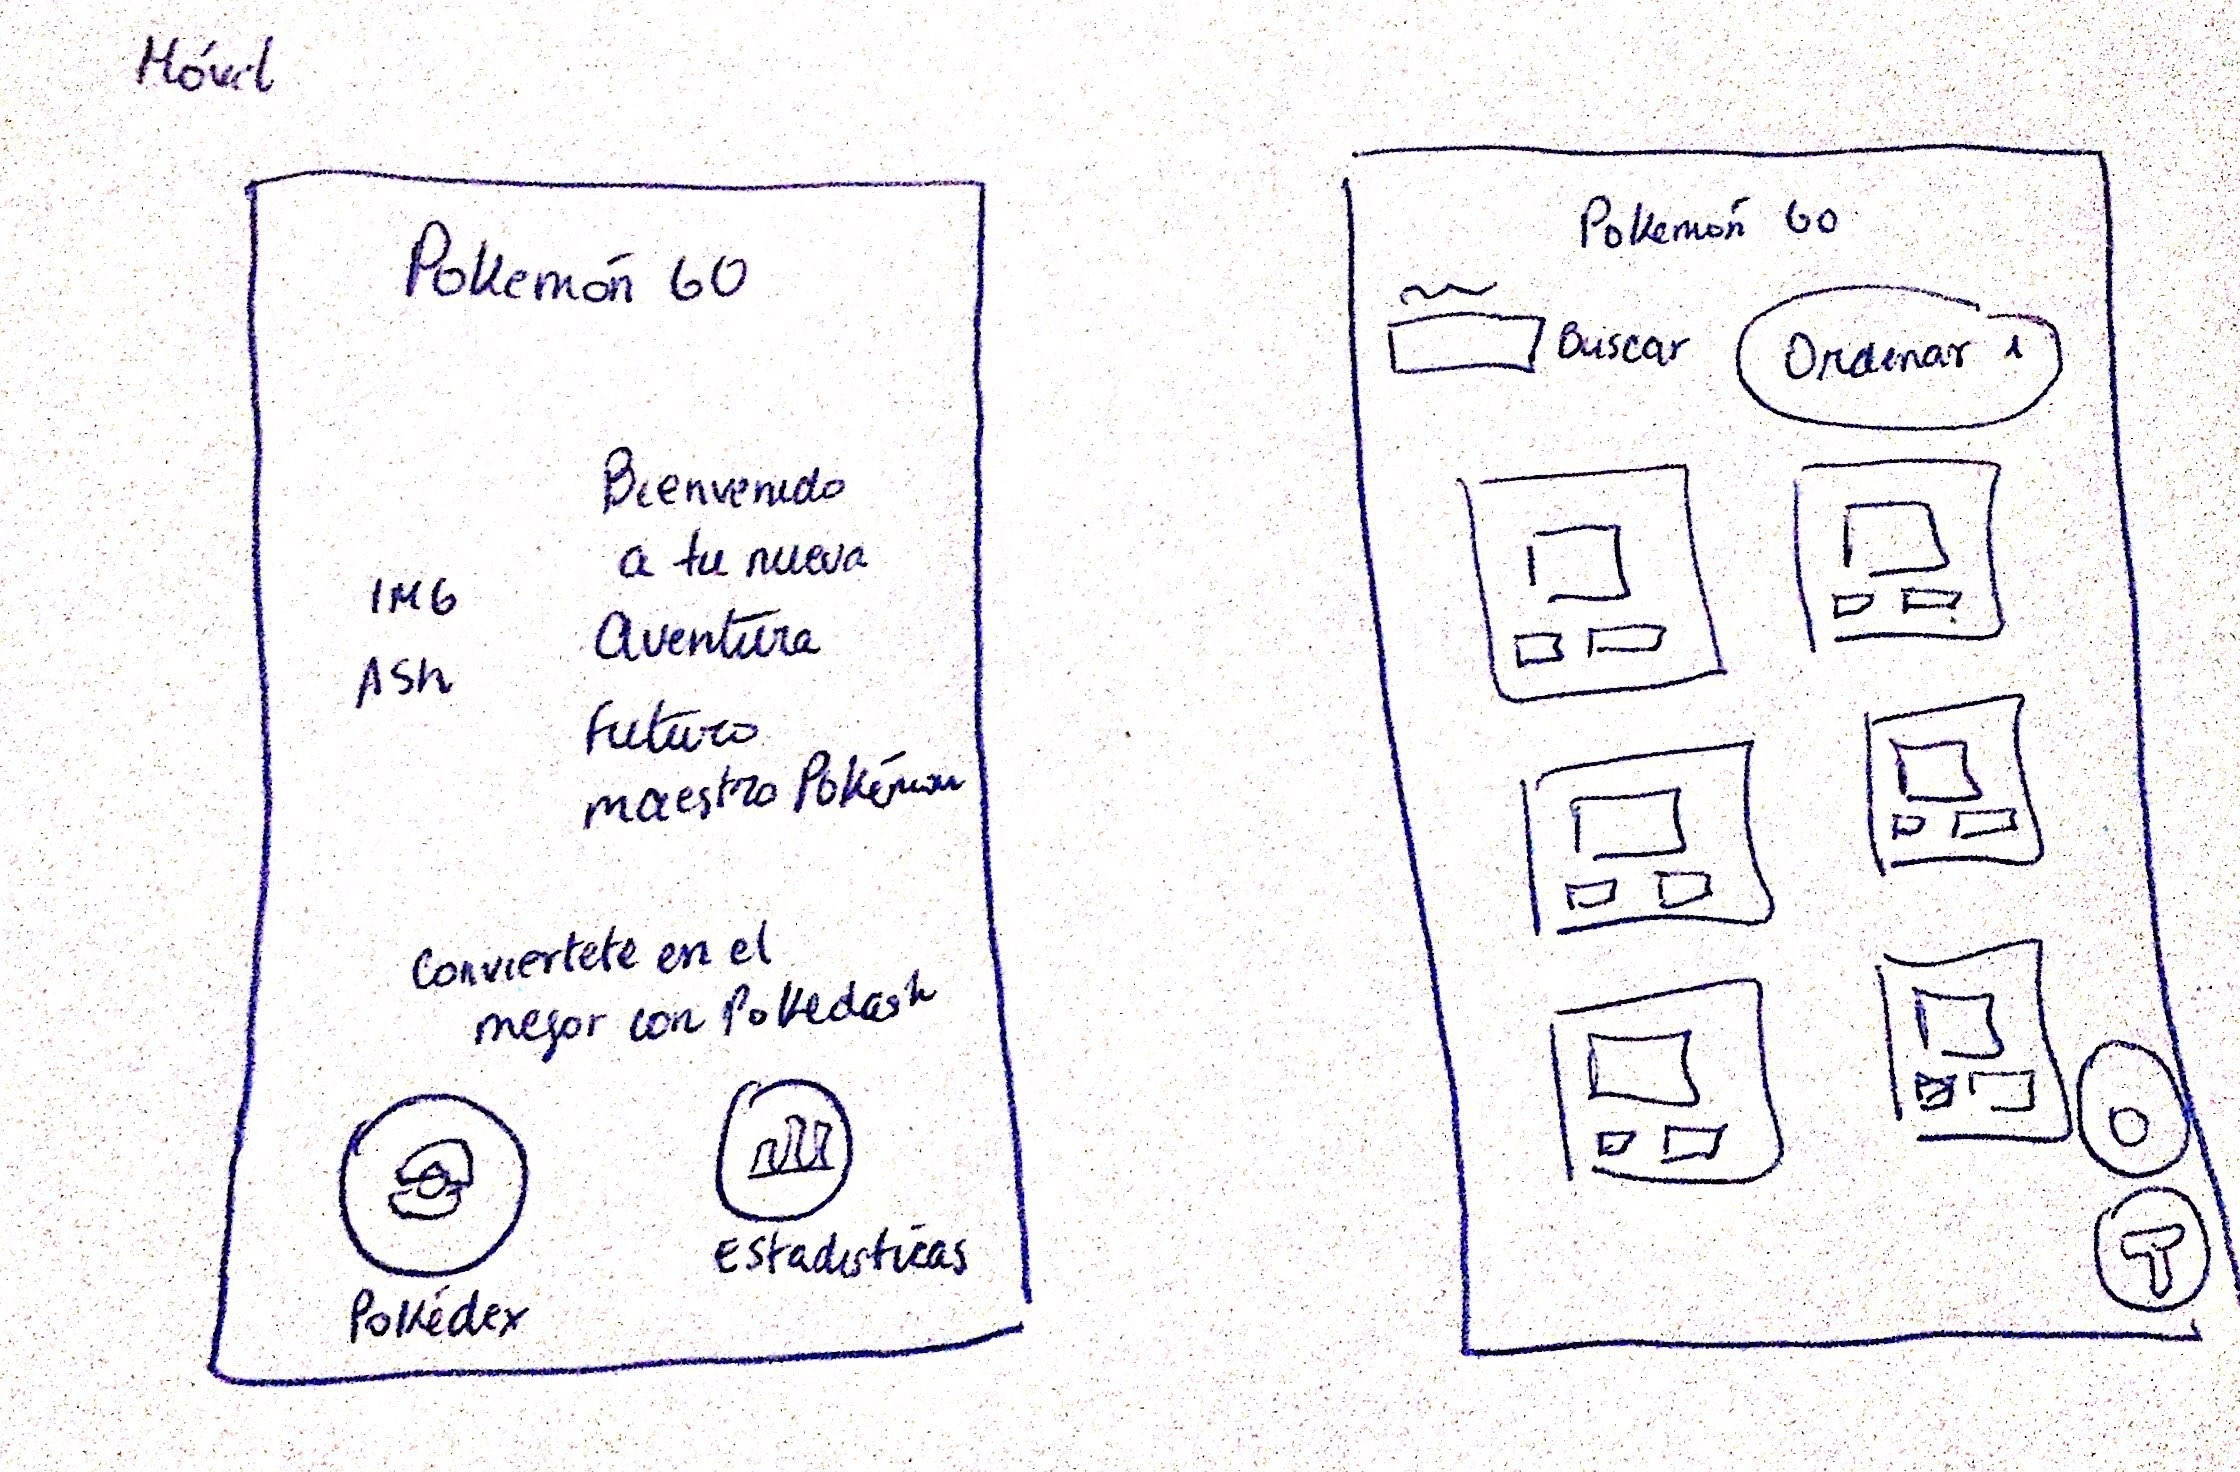 Móvil
Pokemón GO
Bienvenido
a tu nueva
Aventura
futuro
maestro Pokémon
IMG
ASh
Conviertete en el
mejor con Pokedash
Pokédex
Estadisticas
Pokemón GO
Buscar
Ordenar